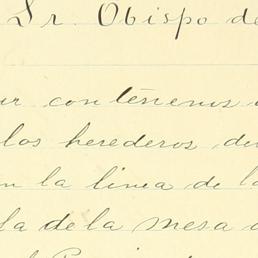 Sr. Obispo de
ur con terrenos
los herederos de
n la linea de la
la de la mesa